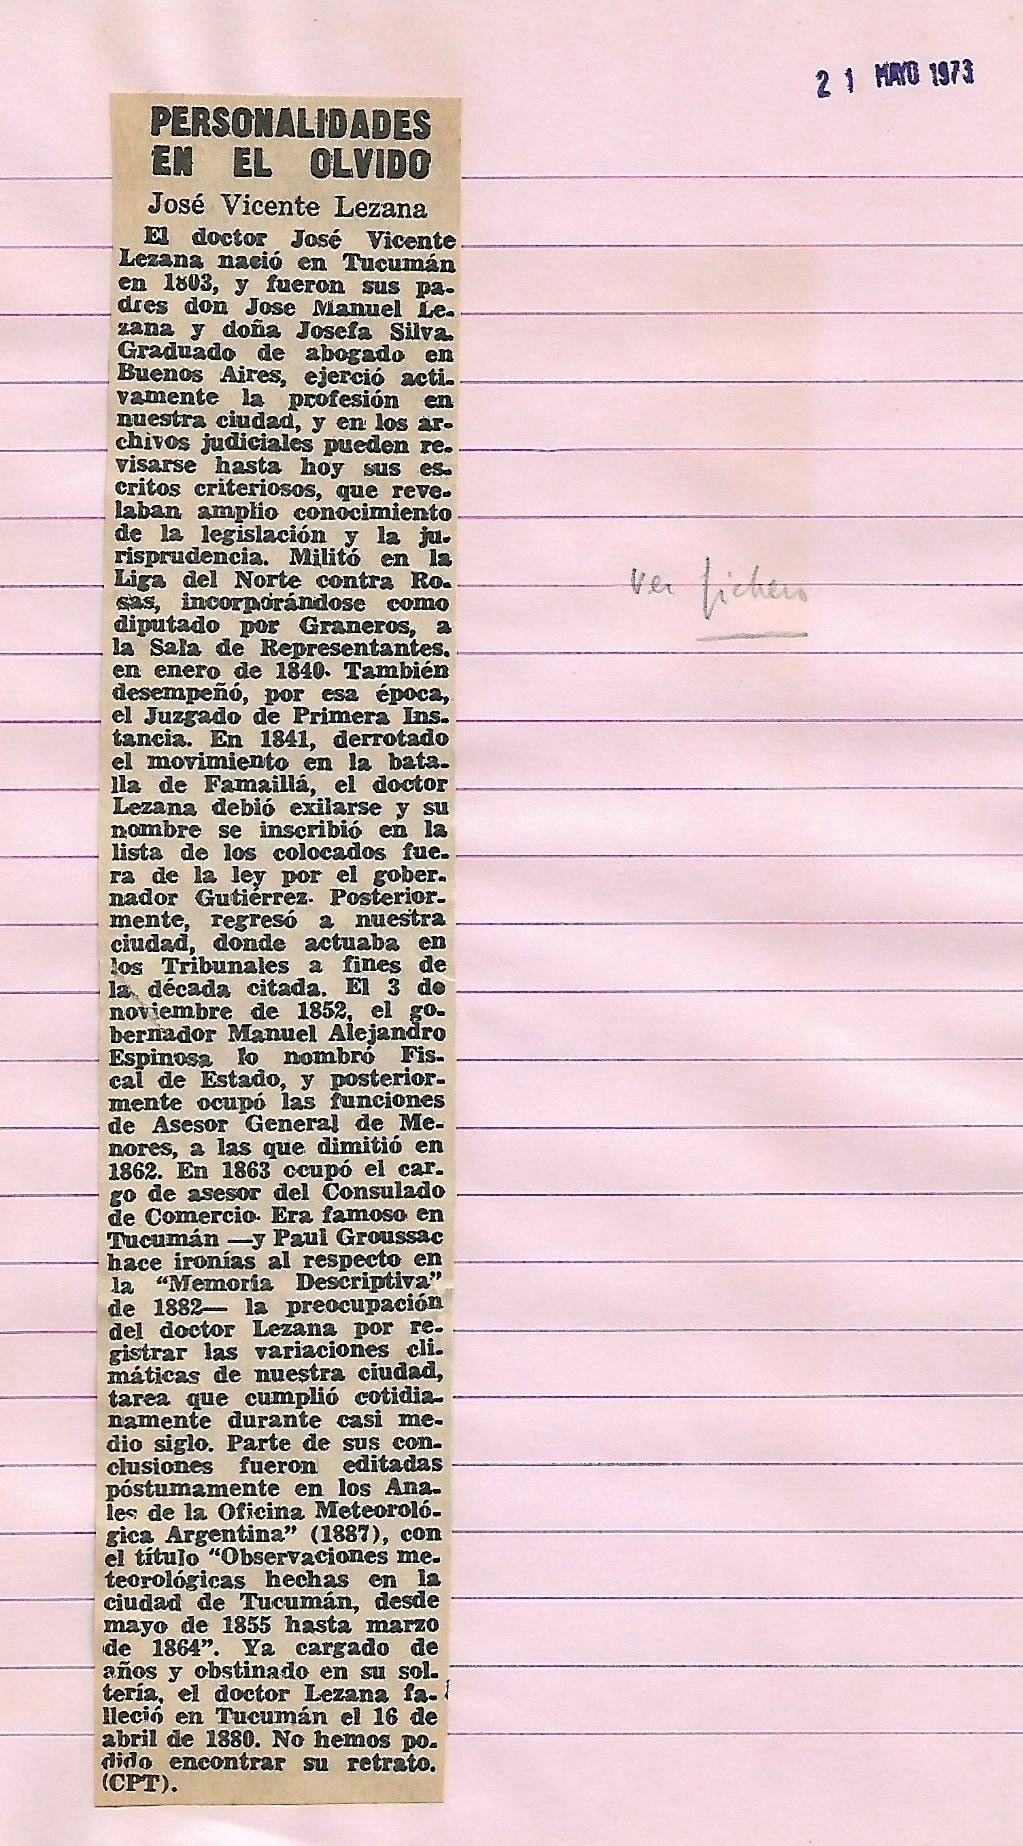 21 MAYO 1973
PERSONALIDADES
EN EL OLVIDO
José Vicente Lezana
El doctor José Vicente
Lezana nació en Tucumán
en 1803, y fueron sus pa-
dres don Jose Manuel Le-
zana y doña Josefa Silva.
Graduado de abogado en
Buenos Aires, ejerció acti-
vamente la profesión en
nuestra ciudad, y en los ar-
chivos judiciales pueden re-
visarse hasta hoy sus es-
critos criteriosos, que reve-
laban amplio conocimiento
de la legislación y la ju-
risprudencia. Militó en la
Liga del Norte contra Ro-
sas, incorporándose como
diputado por Graneros, a
la Sala de Representantes,
en enero de 1840. También
desempeñó, por esa época,
el Juzgado de Primera Ins-
tancia. En 1841, derrotado
el movimiento en la bata-
lla de Famaillá, el doctor
Lezana debió exilarse y su
nombre se inscribió en la
lista de los colocados fue-
ra de la ley por el gober-
nador Gutiérrez. Posterior-
mente, regresó a nuestra
ciudad, donde actuaba en
los Tribunales a fines de
la década citada. El 3 de
noviembre de 1852, el go-
bernador Manuel Alejandro
Espinosa lo nombró Fis-
cal de Estado, y posterior-
mente ocupó las funciones
de Asesor General de Me-
nores, a las que dimitió en
1862. En 1863 ocupó el car-
go de asesor del Consulado
de Comercio. Era famoso en
Tucumán —y Paul Groussac
hace ironías al respecto en
la "Memoria Descriptiva"
de 1882— la preocupación
del doctor Lezana por re-
gistrar las variaciones cli-
máticas de nuestra ciudad,
tarea que cumplió cotidia-
namente durante casi me-
dio siglo. Parte de sus con-
clusiones fueron editadas
póstumamente en los Ana-
les de la Oficina Meteoroló-
gica Argentina" (1887), con
el título "Observaciones me-
teorológicas hechas en la
ciudad de Tucumán, desde
mayo de 1855 hasta marzo
de 1864". Ya cargado de
años y obstinado en su sol-
tería, el doctor Lezana fa-
lleció en Tucumán el 16 de
abril de 1880. No hemos po-
dido encontrar su retrato.
(CPT).
ver fichero